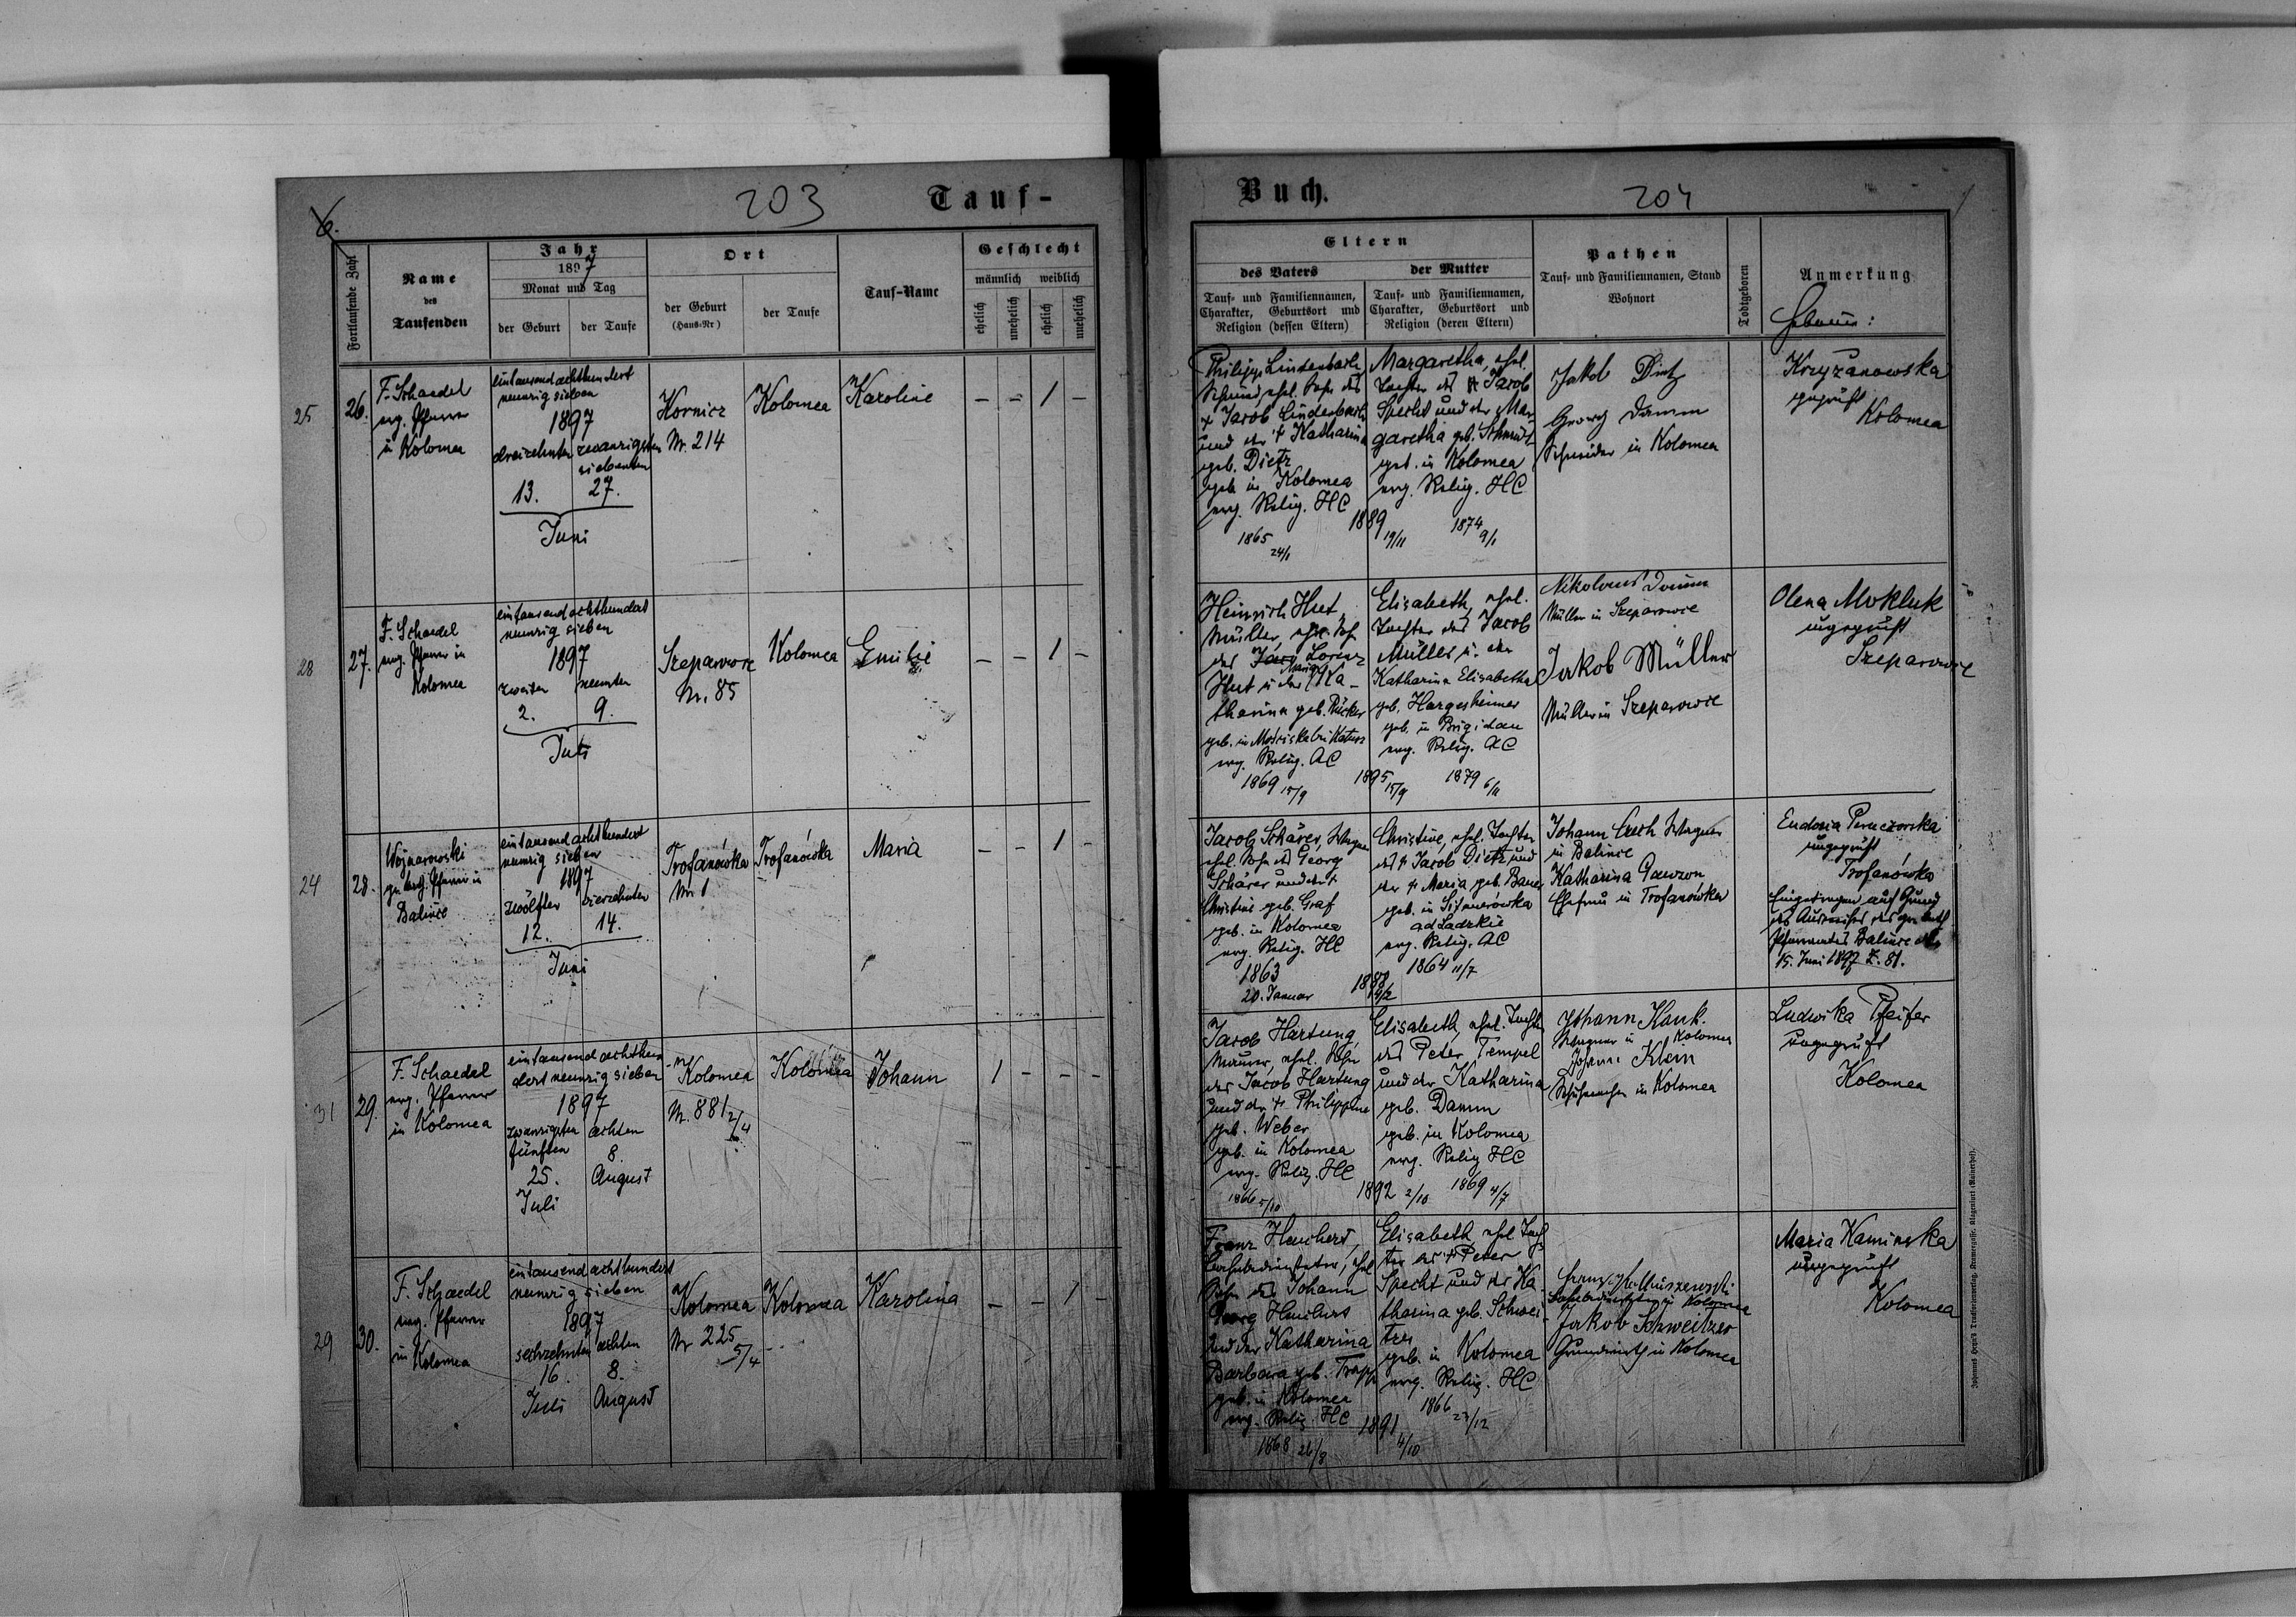 6.
203
Tauf-
Fortlaufende Zahl
Name
des
Taufenden
Jahr
1897
Monat und Tag
der Geburt
der Taufe
Ort
der Geburt
(Haus-Nr)
der Taufe
Tauf-Name
Geschlecht
männlich
weiblich
ehelich
unehelich
ehelich
unehelich
25
26.
F. Schaedel
evg. Pfarrer
in Kolomea
eintausendachthundert
neunzig sieben
1897
dreizehnten zwanzigsten
siebenten
13. 27.
Juni
Kornicz
Nr. 214
Kolomea
Karoline
– – 1 –
28
27.
F. Schaedel
evg. Pfarrer in
Kolomea
eintausendachthundert
neunzig sieben
1897
zweiten neunten
2. 9.
Juli
Szeparowce
Nr. 85
Kolomea
Emilie
– – 1 –
24
28.
Wojnarowski
gr. kath. Pfarrer in
Balince
eintausendachthundert
neunzig sieben
1897
zwölften vierzehnten
12. 14.
Juni
Trofanówka
Nr 1
Trofanówka
Maria
– – 1 –
31
29.
F. Schaedel
evg. Pfarrer
in Kolomea
eintausendachthun
dert neunzig sieben
1897
zwanzigsten achten
fünften 8.
25. August
Juli
Kolomea
Nr. 881 2/4
Kolomea
Johann
1 – – –
29
30.
F. Schaedel
evg. Pfarrer
in Kolomea
eintausendachthundert
neunzig sieben
1897
sechzehnten achten
16. 8.
Juli August
Kolomea
Nr 225 5/4
Kolomea
Karolina
– – 1 –
Buch.
204
Eltern
des Vaters
Tauf- und Familiennamen,
Charakter, Geburtsort und
Religion (dessen Eltern)
der Mutter
Tauf- und Familiennamen,
Charakter, Geburtsort und
Religion (deren Eltern)
Pathen
Tauf- und Familiennamen, Stand
Wohnort
Todtgeboren
Anmerkung
Philipp Lindenbach
Schmied, ehel. Sohn des
† Jacob Lindenbach
und der † Katharina
geb. Dietz
geb. in Kolomea
evg. Relig. HC
1865 24/1
1889 19/11
Margaretha, ehel.
Tochter des † Jacob
Specht und der Mar
garetha geb. Schmidt
geb. in Kolomea
evg. Relig. HC
1874 9/1
Jakob Dietz
Georg Damm
Schneider in Kolomea
Krzyzanowska
geprüft
Kolomea
Heinrich Hut,
Müller, ehel. Sohn
des Lorenz
Hut u. der Maria Ka-
tharina geb. Rücker
geb. in
evg. Relig. AC
1869 15/9
1895 15/9
Elisabeth, ehel.
Tochter des Jacob
Müller u. der
Katharina Elisabetha
geb. Hargesheimer
geb. in Brigidau
evg. Relig. AC
1879 6/11
Nikolaus Damm
Müller in Szeparowce
Jakob Müller
Müller in Szeparowce
Olena Mokluk
ungeprüft
Szeparowce
Jacob Schärer, Wagner
ehel. Sohn des Georg
Schärer und der †
Christine geb. Graf
geb. in Kolomea
evg. Relig. HC
1863
20. Januar
1888 14/2
Christine, ehel. Tochter
des † Jacob Dietz und
der † Maria geb. Bauer
geb. in
ad Ladzkie
evg. Relig. AC
1864 11/7
Johann Wagner
in Balince
Katharina Gawron
Ehefrau in Trofanówka
Eudoxia
ungeprüft
Trofanówka
Eingetragen auf Grund
des Ausweises des gr. kath
Pfarramtes Balince dto
15. Juni 1897 Z. 81.
Jacob Hartung,
Maurer, ehel. Sohn
des Jacob Hartung
und der † Philippine
geb. Weber
geb. in Kolomea
evg. Relig. HC
1866 5/10
1892 2/10
Elisabeth, ehel. Tochter
des Peter Tempel
und der Katharina
geb. Damm
geb. in Kolomea
evg. Relig HC
1869 4/7
Johann Kauk.
Wagner in Kolomea
Johann Klein
Schuhmacher in Kolomea
Ludwika Pfeifer
ungeprüft
Kolomea
Franz Heuchert,
Bahnbediensteter, ehel
Sohn des Johann
Georg Heuchert
und der Katharina
Barbara geb.
geb. in Kolomea
evg. Relig. HC
1868 26/8
1891 4/10
Elisabeth, ehel Toch
ter des † Peter
Specht und der Ka
tharina geb. Schwei-
tzer
geb. in Kolomea
evg. Relig. HC
1866 27/12
Bahnbediensteter in Kolomea
Jakob Schweitzer
Grundwirth in Kolomea
Maria Kaminska
ungeprüft
Kolomea